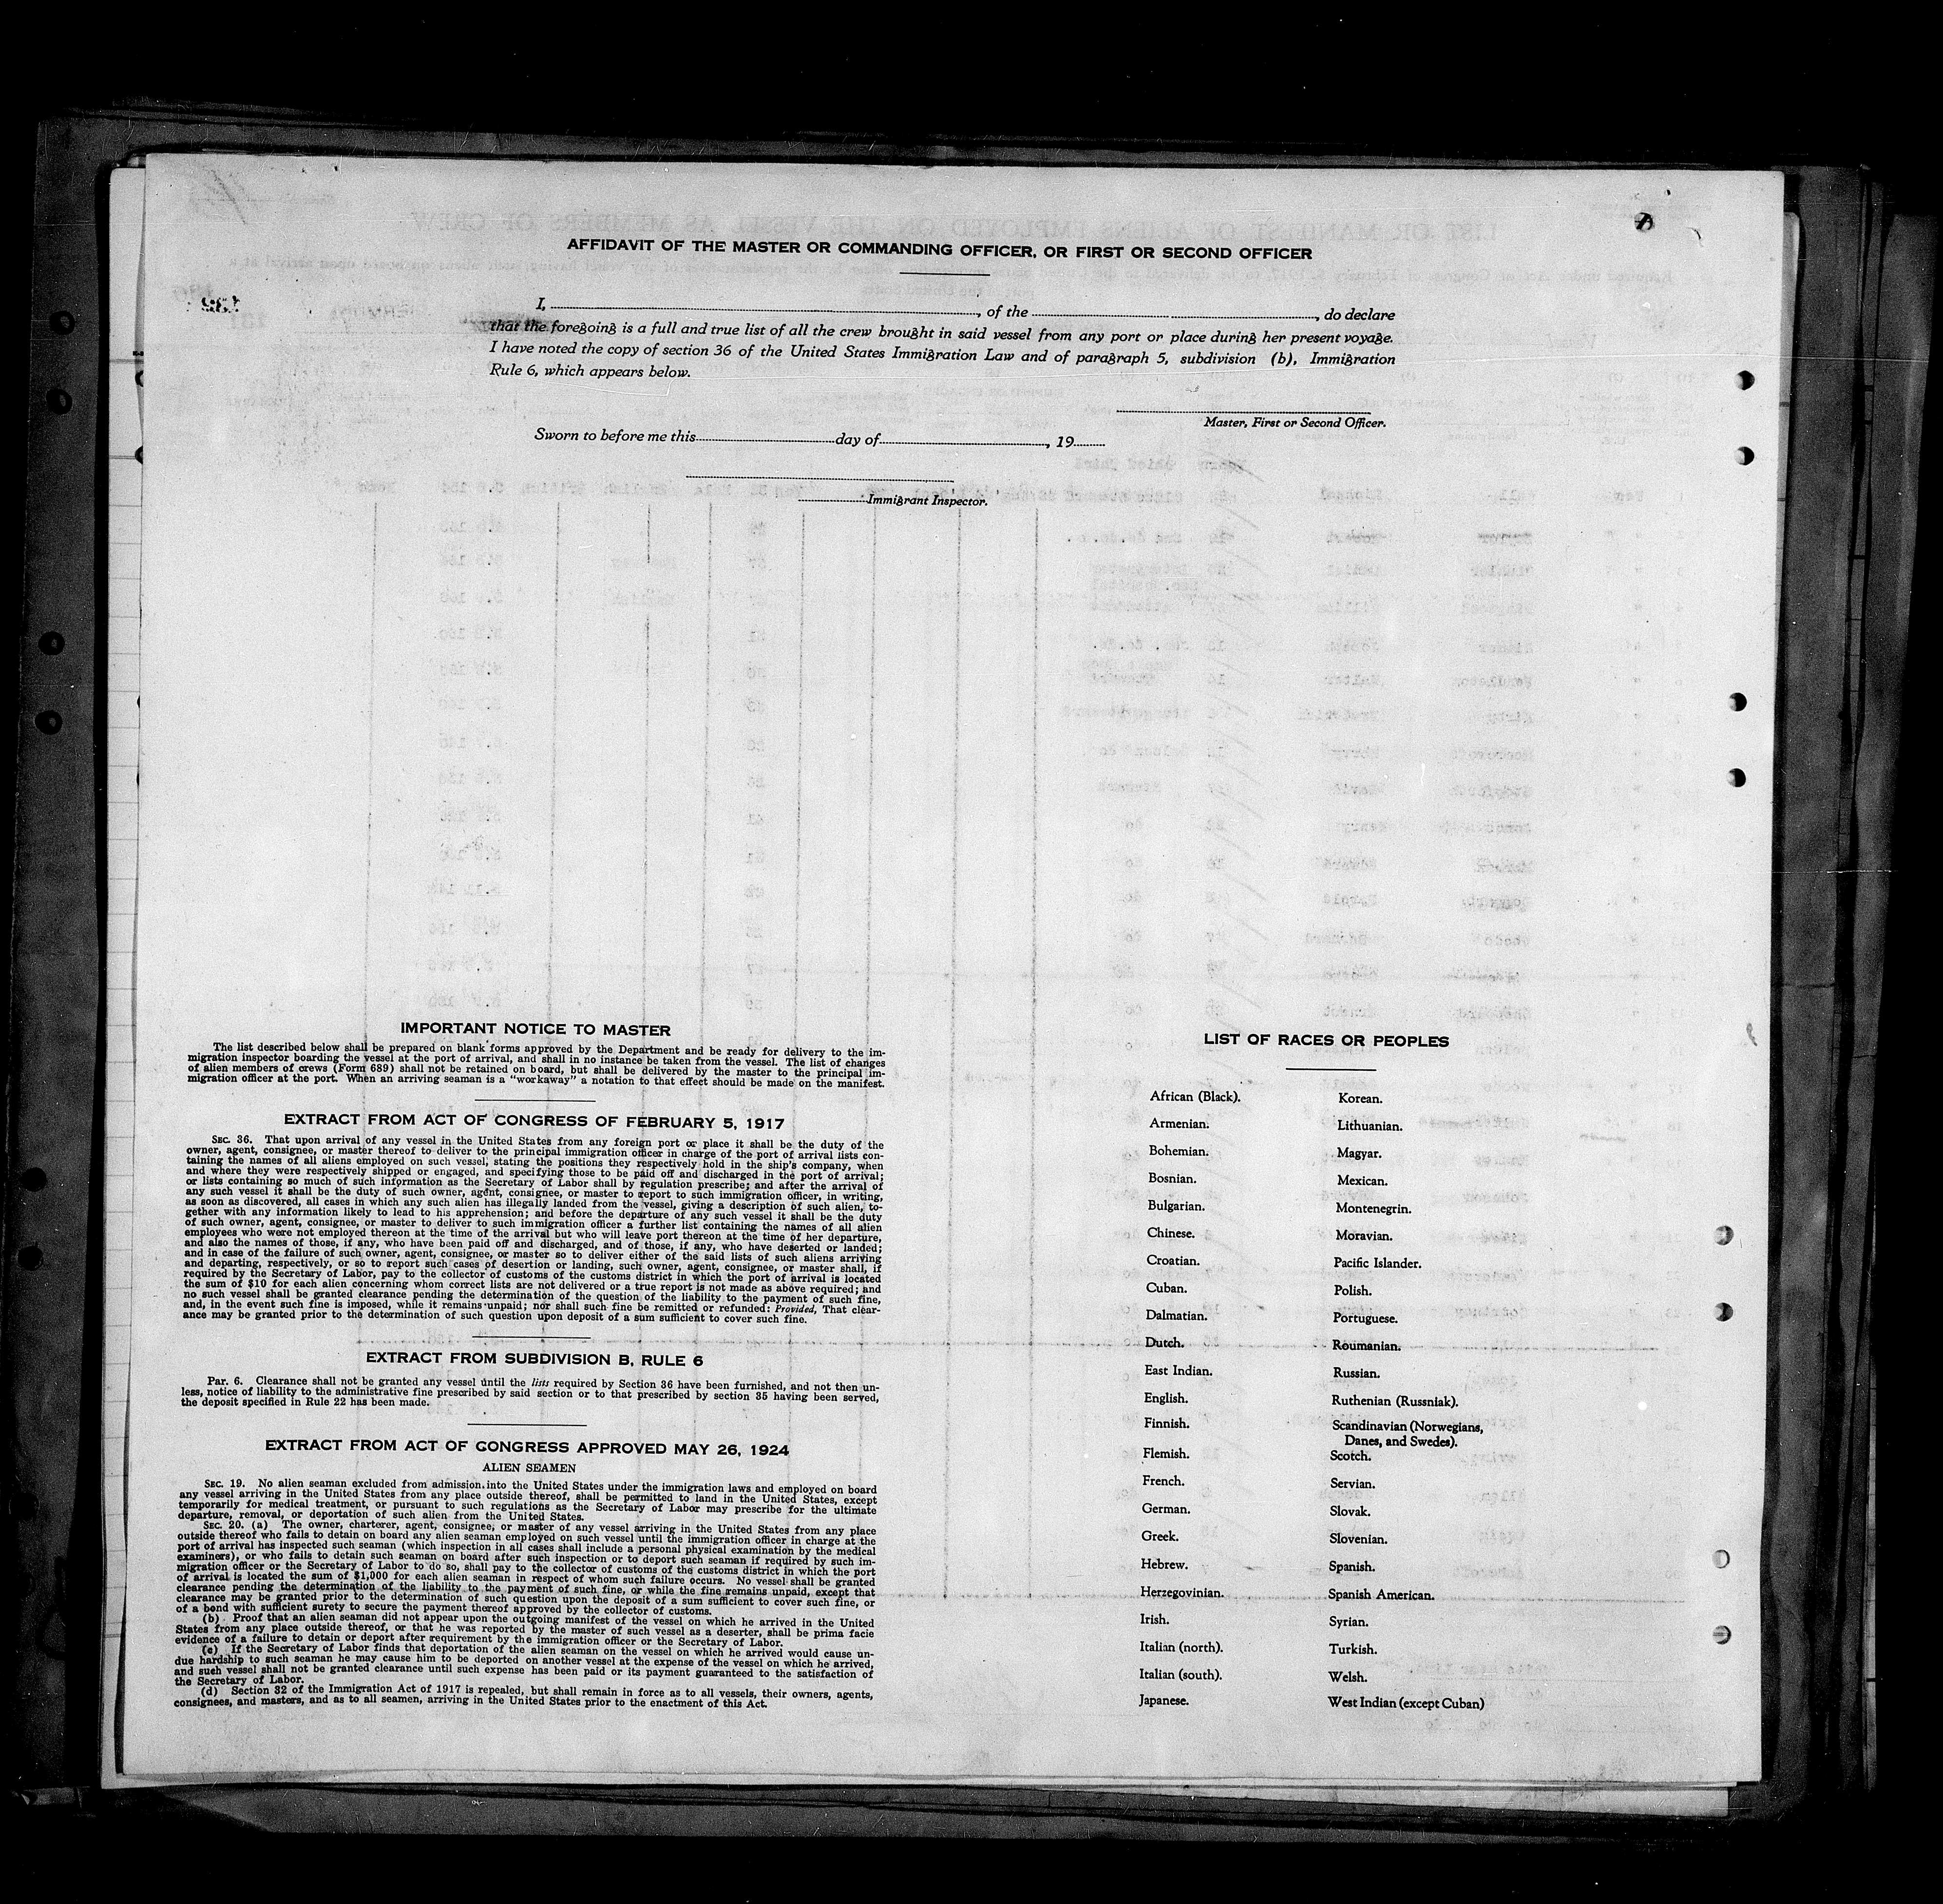 AFFIDAVIT OF THE MASTER OR COMMANDING OFFICER, OR FIRST OR SECOND OFFICER
I, , of the , do declare
that the foregoing is a full and true list of all the crew brought in said vessel from any port or place during her present voyage.
I have noted the copy of section 36 of the United States Immigration Law and of paragraph 5, subdivision (b), Immigration
Rule 6, which appears below.
Master, First or Second Officer.
Sworn to before me this day of , 19
Immigrant Inspector.
IMPORTANT NOTICE TO MASTER
The list described below shall be prepared on blank forms approved by the Department and be ready for delivery to the im-
migration inspector boarding the vessel at the port of arrival, and shall in no instance be taken from the vessel. The list of changes
of alien members of crews (Form 689) shall not be retained on board, but shall be delivered by the master to the principal im-
migration officer at the port. When an arriving seaman is a "workaway" a notation to that effect should be made on the manifest.
EXTRACT FROM ACT OF CONGRESS OF FEBRUARY 5, 1917
SEC. 36. That upon arrival of any vessel in the United States from any foreign port or place it shall be the duty of the
owner, agent, consignee, or master thereof to deliver to the principal immigration officer in charge of the port of arrival lists con-
taining the names of all aliens employed on such vessel, stating the positions they respectively hold in the ship's company, when
and where they were respectively shipped or engaged, and specifying those to be paid off and discharged in the port of arrival;
or lists containing so much of such information as the Secretary of Labor shall by regulation prescribe; and after the arrival of
any such vessel it shall be the duty of such owner, agent, consignee, or master to report to such immigration officer, in writing,
as soon as discovered, all cases in which any such alien has illegally landed from the vessel, giving a description of such alien, to-
gether with any information likely to lead to his apprehension; and before the departure of any such vessel it shall be the duty
of such owner, agent, consignee, or master to deliver to such immigration officer a further list containing the names of all alien
employees who were not employed thereon at the time of the arrival but who will leave port thereon at the time of her departure,
and also the names of those, if any, who have been paid off and discharged, and of those, if any, who have deserted or landed;
and in case of the failure of such owner, agent, consignee, or master so to deliver either of the said lists of such aliens arriving
and departing, respectively, or so to report such cases of desertion or landing, such owner, agent, consignee, or master shall, if
required by the Secretary of Labor, pay to the collector of customs of the customs district in which the port of arrival is located
the sum of $10 for each alien concerning whom correct lists are not delivered or a true report is not made as above required; and
no such vessel shall be granted clearance pending the determination of the question of the liability to the payment of such fine,
and, in the event such fine is imposed, while it remains unpaid; nor shall such fine be remitted or refunded: Provided, That clear-
ance may be granted prior to the determination of such question upon deposit of a sum sufficient to cover such fine.
EXTRACT FROM SUBDIVISION B, RULE 6
Par. 6. Clearance shall not be granted any vessel until the lists required by Section 36 have been furnished, and not then un-
less, notice of liability to the administrative fine prescribed by said section or to that prescribed by section 35 having been served,
the deposit specified in Rule 22 has been made.
EXTRACT FROM ACT OF CONGRESS APPROVED MAY 26, 1924
ALIEN SEAMEN
SEC. 19. No alien seaman excluded from admission into the United States under the immigration laws and employed on board
any vessel arriving in the United States from any place outside thereof, shall be permitted to land in the United States, except
temporarily for medical treatment, or pursuant to such regulations as the Secretary of Labor may prescribe for the ultimate
departure, removal, or deportation of such alien from the United States.
SEC. 20. (a) The owner, charterer, agent, consignee, or master of any vessel arriving in the United States from any place
outside thereof who fails to detain on board any alien seaman employed on such vessel until the immigration officer in charge at the
port of arrival has inspected such seaman (which inspection in all cases shall include a personal physical examination by the medical
examiners), or who fails to detain such seaman on board after such inspection or to deport such seaman if required by such im-
migration officer or the Secretary of Labor to do so, shall pay to the collector of customs of the customs district in which the port
of arrival is located the sum of $1,000 for each alien seaman in respect of whom such failure occurs. No vessel shall be granted
clearance pending the determination of the liability to the payment of such fine, or while the fine remains unpaid, except that
clearance may be granted prior to the determination of such question upon the deposit of a sum sufficient to cover such fine, or
of a bond with sufficient surety to secure the payment thereof approved by the collector of customs.
(b) Proof that an alien seaman did not appear upon the outgoing manifest of the vessel on which he arrived in the United
States from any place outside thereof, or that he was reported by the master of such vessel as a deserter, shall be prima facie
evidence of a failure to detain or deport after requirement by the immigration officer or the Secretary of Labor.
(c) If the Secretary of Labor finds that deportation of the alien seaman on the vessel on which he arrived would cause un-
due hardship to such seaman he may cause him to be deported on another vessel at the expense of the vessel on which he arrived,
and such vessel shall not be granted clearance until such expense has been paid or its payment guaranteed to the satisfaction of
the Secretary of Labor.
(d) Section 32 of the Immigration Act of 1917 is repealed, but shall remain in force as to all vessels, their owners, agents,
consignees, and masters, and as to all seamen, arriving in the United States prior to the enactment of this Act.
LIST OF RACES OR PEOPLES
African (Black).
Armenian.
Bohemian.
Bosnian.
Bulgarian.
Chinese.
Croatian.
Cuban.
Dalmatian.
Dutch.
East Indian.
English.
Finnish.
Flemish.
French.
German.
Greek.
Hebrew.
Herzegovinian.
Irish.
Italian (north).
Italian (south).
Japanese.
Korean.
Lithuanian.
Magyar.
Mexican.
Montenegrin.
Moravian.
Pacific Islander.
Polish.
Portuguese.
Roumanian.
Russian.
Ruthenian (Russniak).
Scandinavian (Norwegians,
Danes, and Swedes).
Scotch.
Servian.
Slovak.
Slovenian.
Spanish.
Spanish American.
Syrian.
Turkish.
Welsh.
West Indian (except Cuban)